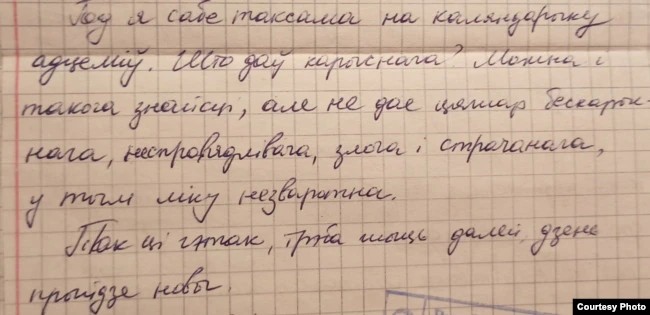 Год я сабе таксама на каляндарыку
адцеміў. Што даў карыснага? Можна і
такога знайсці, але не дае цяжар бескарыс-
нага, несправядлівага, злога і страчанага,
у тым ліку незваротна.
Так ці гэтак, трэба жыць далей, дзень
прыйдзе новы.
Courtesy Photo